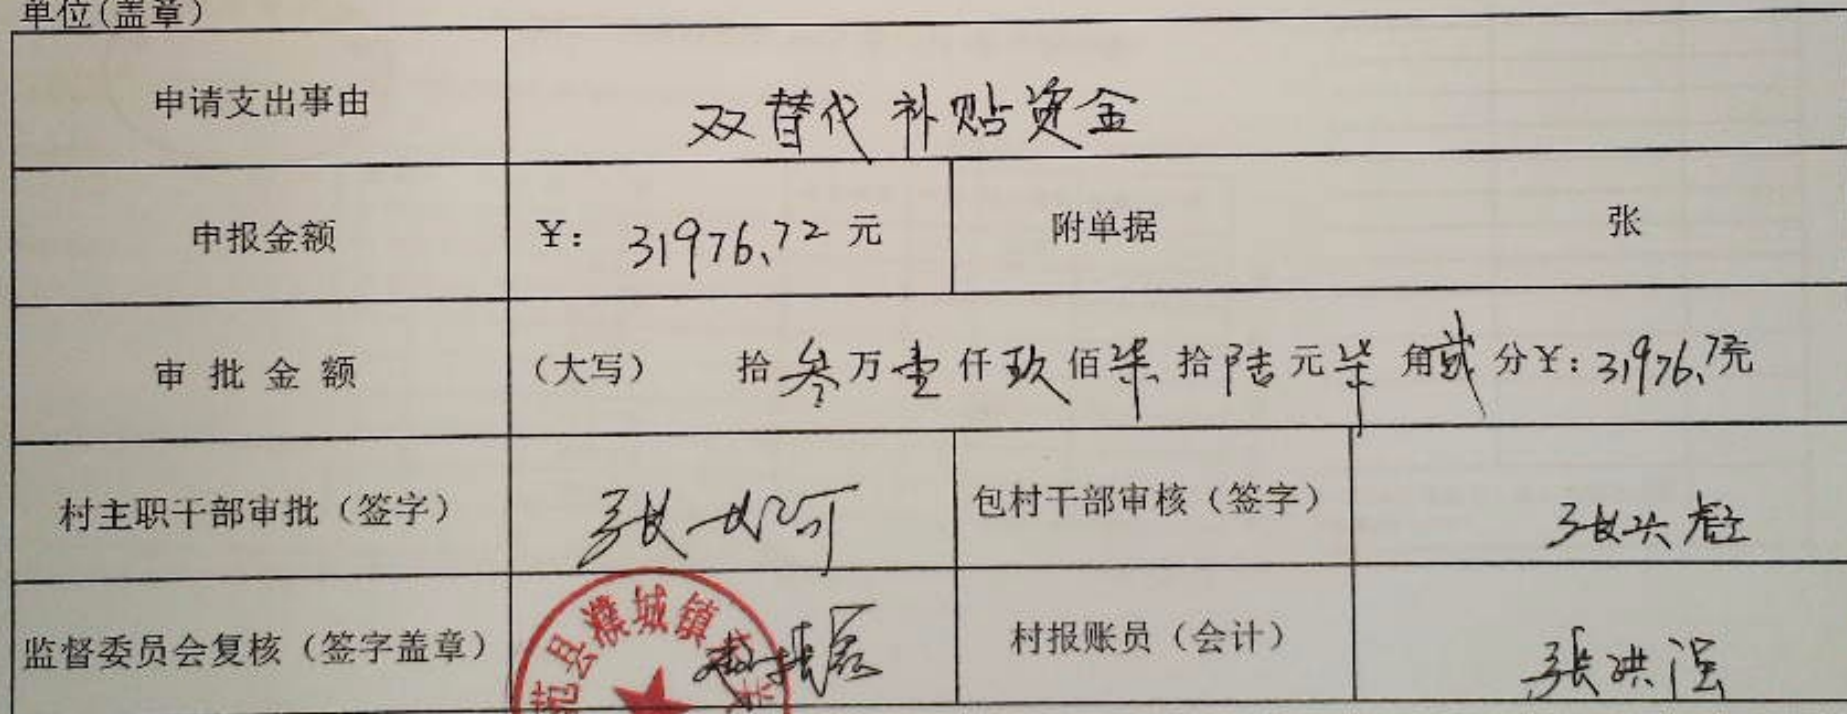 单位(盖章)
申请支出事由 双替代补贴资金
申报金额 ¥: 31976.72元 附单据 张
审批金额 (大写) 拾叁万壹仟玖佰柒拾陆元柒角贰分¥:31976.72元
村主职干部审批(签字) 张 包村干部审核(签字) 张兴
监督委员会复核(签字盖章) 范县濮城镇 村报账员(会计) 张洪强